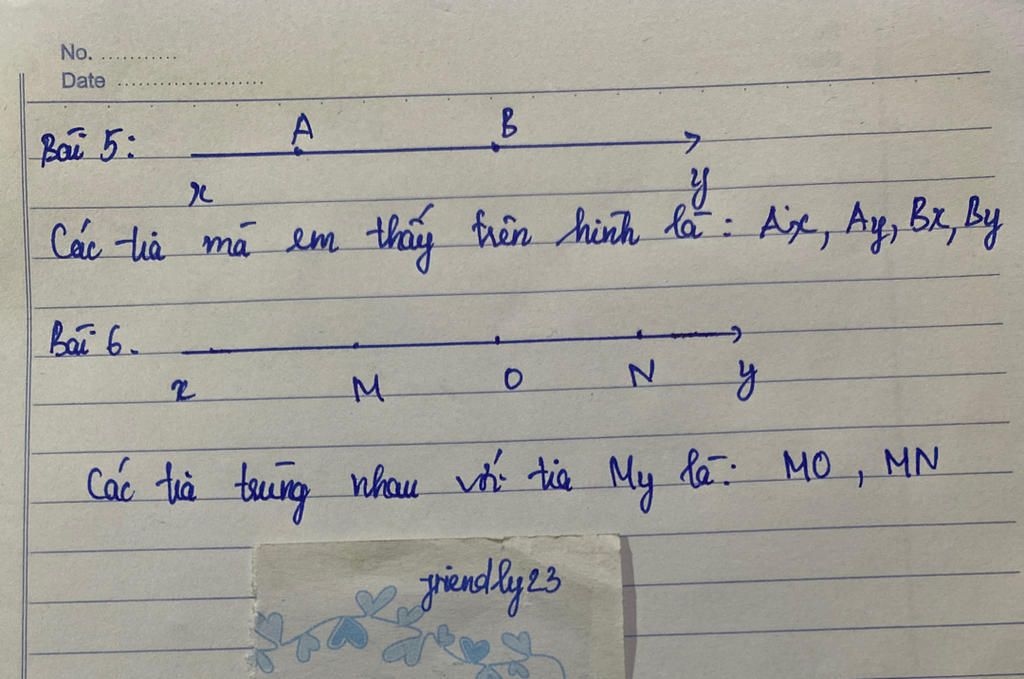 No. ...........
Date ......................
Bài 5: A B
x y
Các tia mà em thấy trên hình là: Ax, Ay, Bx, By
Bài 6.
x M O N y
Các tia trùng nhau với tia My là: MO, MN
friendly23